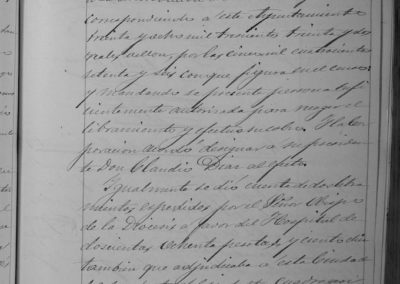 correspondiendo a este Ayuntamiento
treinta y ocho mil trescientos treinta y dos
reales vellon, por las cinco mil cuatrocientas
setenta y seis con que figura en el
y mandando se presente persona sufi
cientemente autorizada para
libramiento y efectue su cobro. Y la Cor
poracion acordo designar a su presiden
te Don Claudio Diaz al efecto.
Igualmente se dió cuenta de dos libra
mientos espedidos por el Señor Obispo
de la Diocesis a favor del Hospital de
doscientas ochenta pesetas y ciento diez
tambien que adjudicaba a esta Ciudad